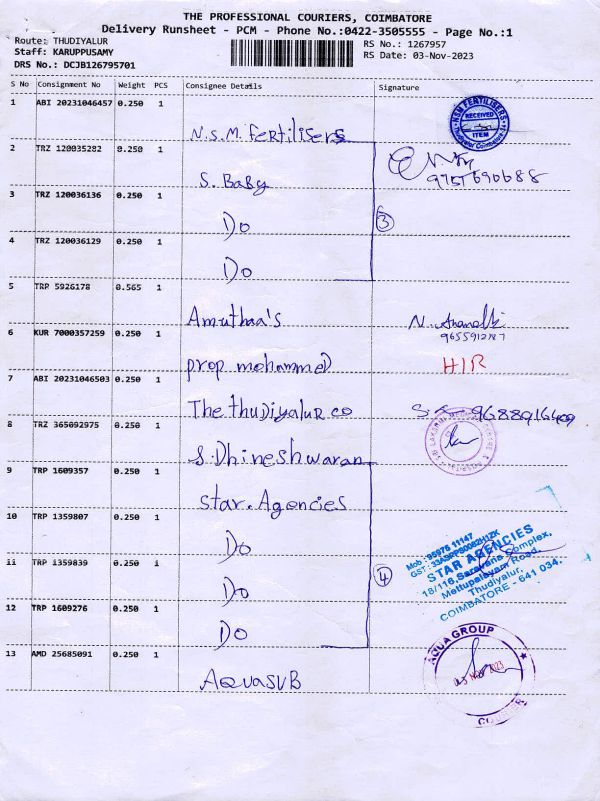 THE PROFESSIONAL COURIERS, COIMBATORE
Delivery Runsheet - PCM - Phone No.:0422-3505555 - Page No.:1
Route: THUDIYALUR
Staff: KARUPPUSAMY
DRS No.: DCJB126795701
RS No.: 1267957
RS Date: 03-Nov-2023
S No Consignment No Weight PCS Consignee Details Signature
1 ABI 20231046457 0.250 1
N.S.M. Fertilisers
NSM FERTILISERS
RECEIVED
ITEM
Thudiyalur Coimbatore
2 TRZ 120035282 0.250 1
S. BaBy
9751690688
3 TRZ 120036136 0.250 1
Do
3
4 TRZ 120036129 0.250 1
Do
5 TRP 5926178 0.565 1
Amuthaa's
N.
6 KUR 7000357259 0.250 1
prop mohammed
HIR
7 ABI 20231046503 0.250 1
The thudiyalur co
8 TRZ 365092975 0.250 1
S. Dhineshwaran
9 TRP 1609357 0.250 1
Star. Agencies
10 TRP 1359807 0.250 1
Do
Mob : 95976 11147
STAR AGENCIES
18/116, Saravana Complex,
Mettupalayam Road,
Thudiyalur,
COIMBATORE - 641 034.
11 TRP 1359839 0.250 1
Do
4
12 TRP 1609276 0.250 1
Do
13 AMD 25685091 0.250 1
AQUASUB
AQUA GROUP
COURIER